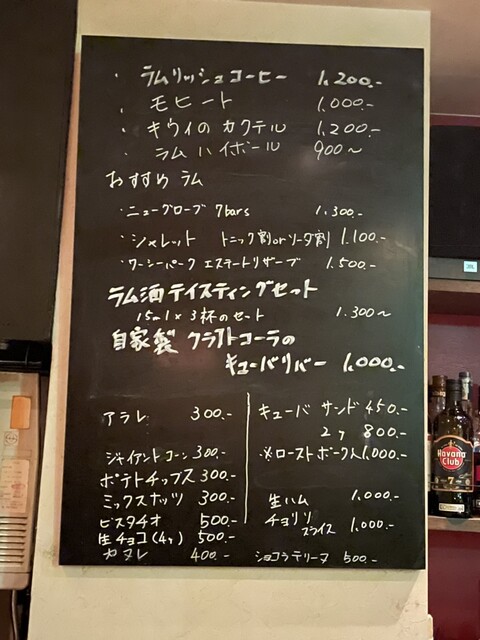 ・ラムリッシュコーヒー 1,200.-
・モヒート 1,000.-
・キウイのカクテル 1,200.-
・ラムハイボール 900〜
おすすめラム
・ニューグローブ 7bars 1.300.-
・シャレット トニック割orソーダ割 1.100.-
・ワーシーパーク エステートリザーブ 1.500.-
ラム酒テイスティングセット
15ml×3杯のセット 1.300〜
自家製クラフトコーラの
キューバリバー 1,000.-
アラレ 300.-
ジャイアントコーン 300.-
ポテトチップス 300.-
ミックスナッツ 300.-
ピスタチオ 500.-
生チョコ(4ヶ) 500.-
カヌレ 400.-
キューバサンド 450.-
2ヶ 800.-
※ローストポーク入 1,000.-
生ハム 1,000.-
チョリソ
スライス 1,000.-
ショコラテリーヌ 500.-
Havana
Club
7
JBL